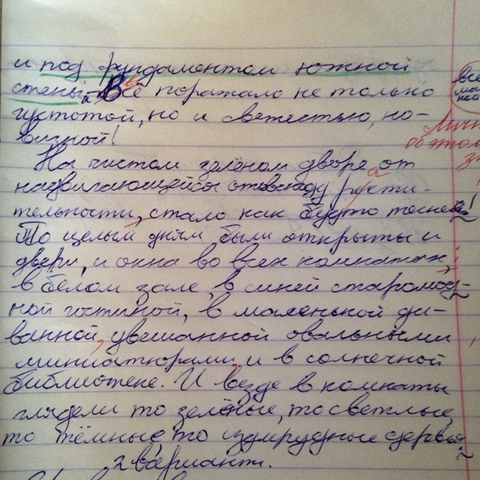 и под фундаментом южной
стены. Всё поражало не только
густотой, но и свежестью, но-
визной!
На чистом зелёном дворе от
надвигающейся отовсюду расти-
тельности, стало как будто теснее!
По целым дням были открыты и
двери, и окна во всех комнатах:
в белом зале, в синей старомод-
ной гостиной, в маленькой ди-
ванной, увешанной овальными
миниатюрами, и в солнечной
библиотеке. И везде в комнаты
глядели то зелёные, то светлые,
то тёмные, то изумрудные деревья.
2 вариант.